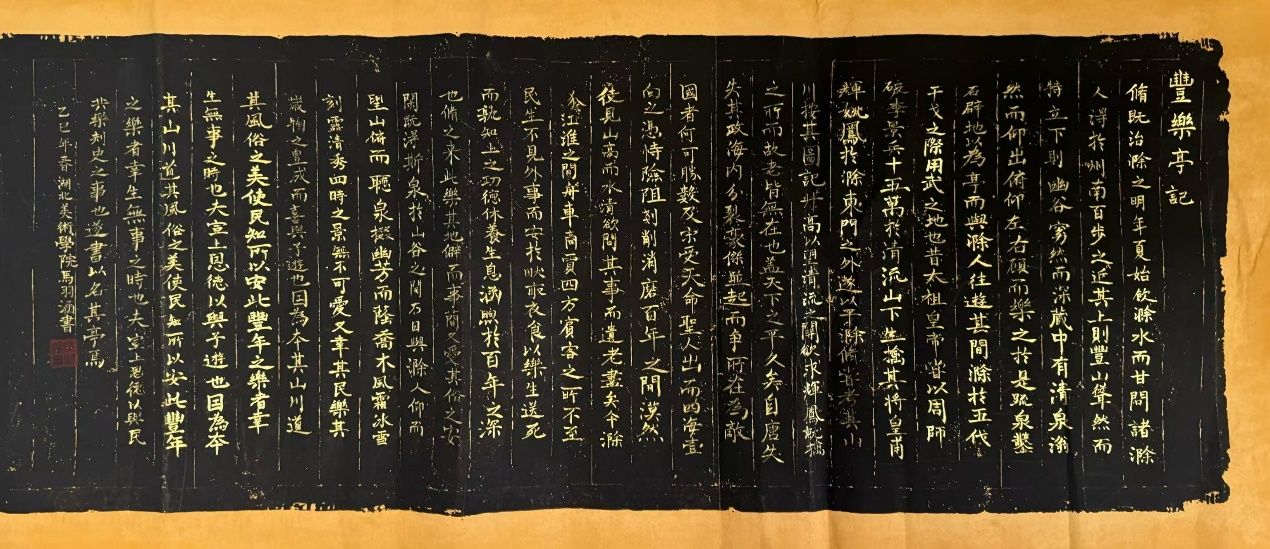 豐樂亭記
脩既治滁之明年夏始飲滁水而甘問諸滁
人得於州南百步之近其上則豐山聳然而
特立下則幽谷窈然而深藏中有清泉滃
然而仰出俯仰左右顧而樂之於是疏泉鑿
石辟地以為亭而與滁人往遊其間滁於五代
干戈之際用武之地也昔太祖皇帝嘗以周師
破李景兵十五萬於清流山下生擒其將皇甫
輝姚鳳於滁東門之外遂以平滁脩嘗考其山
川按其圖記升高以望清流之關欲求輝鳳就擒
之所而故老皆無在也蓋天下之平久矣自唐失
失其政海内分裂豪傑並起而爭所在為敵
國者何可勝數及宋受天命聖人出而四海壹
向之憑恃險阻剗削消磨百年之間漠然
徒見山高而水清欲問其事而遺老盡矣今滁
介江淮之間舟車商賈四方賓客之所不至
民生不見外事而安於畎畝衣食以樂生送死
而孰知上之功德休養生息涵煦於百年之深
也脩之來此樂其地僻而事簡又愛其俗之安
閑既得斯泉於山谷之間乃日與滁人仰而
望山俯而聽泉掇幽芳而蔭喬木風霜冰雪
刻露清秀四時之景無不可愛又幸其民樂其
歲物之豐成而喜與予遊也因為本其山川道
其風俗之美使民知所以安此豐年之樂者幸
生無事之時也夫宣上恩德以與予遊也因為本
其山川道其風俗之美使民知所以安此豐年
之樂者幸生無事之時也夫宣上恩德以與民
共樂刺史之事也遂書以名其亭焉
乙巳年春湖北美術學院馬羽涵書